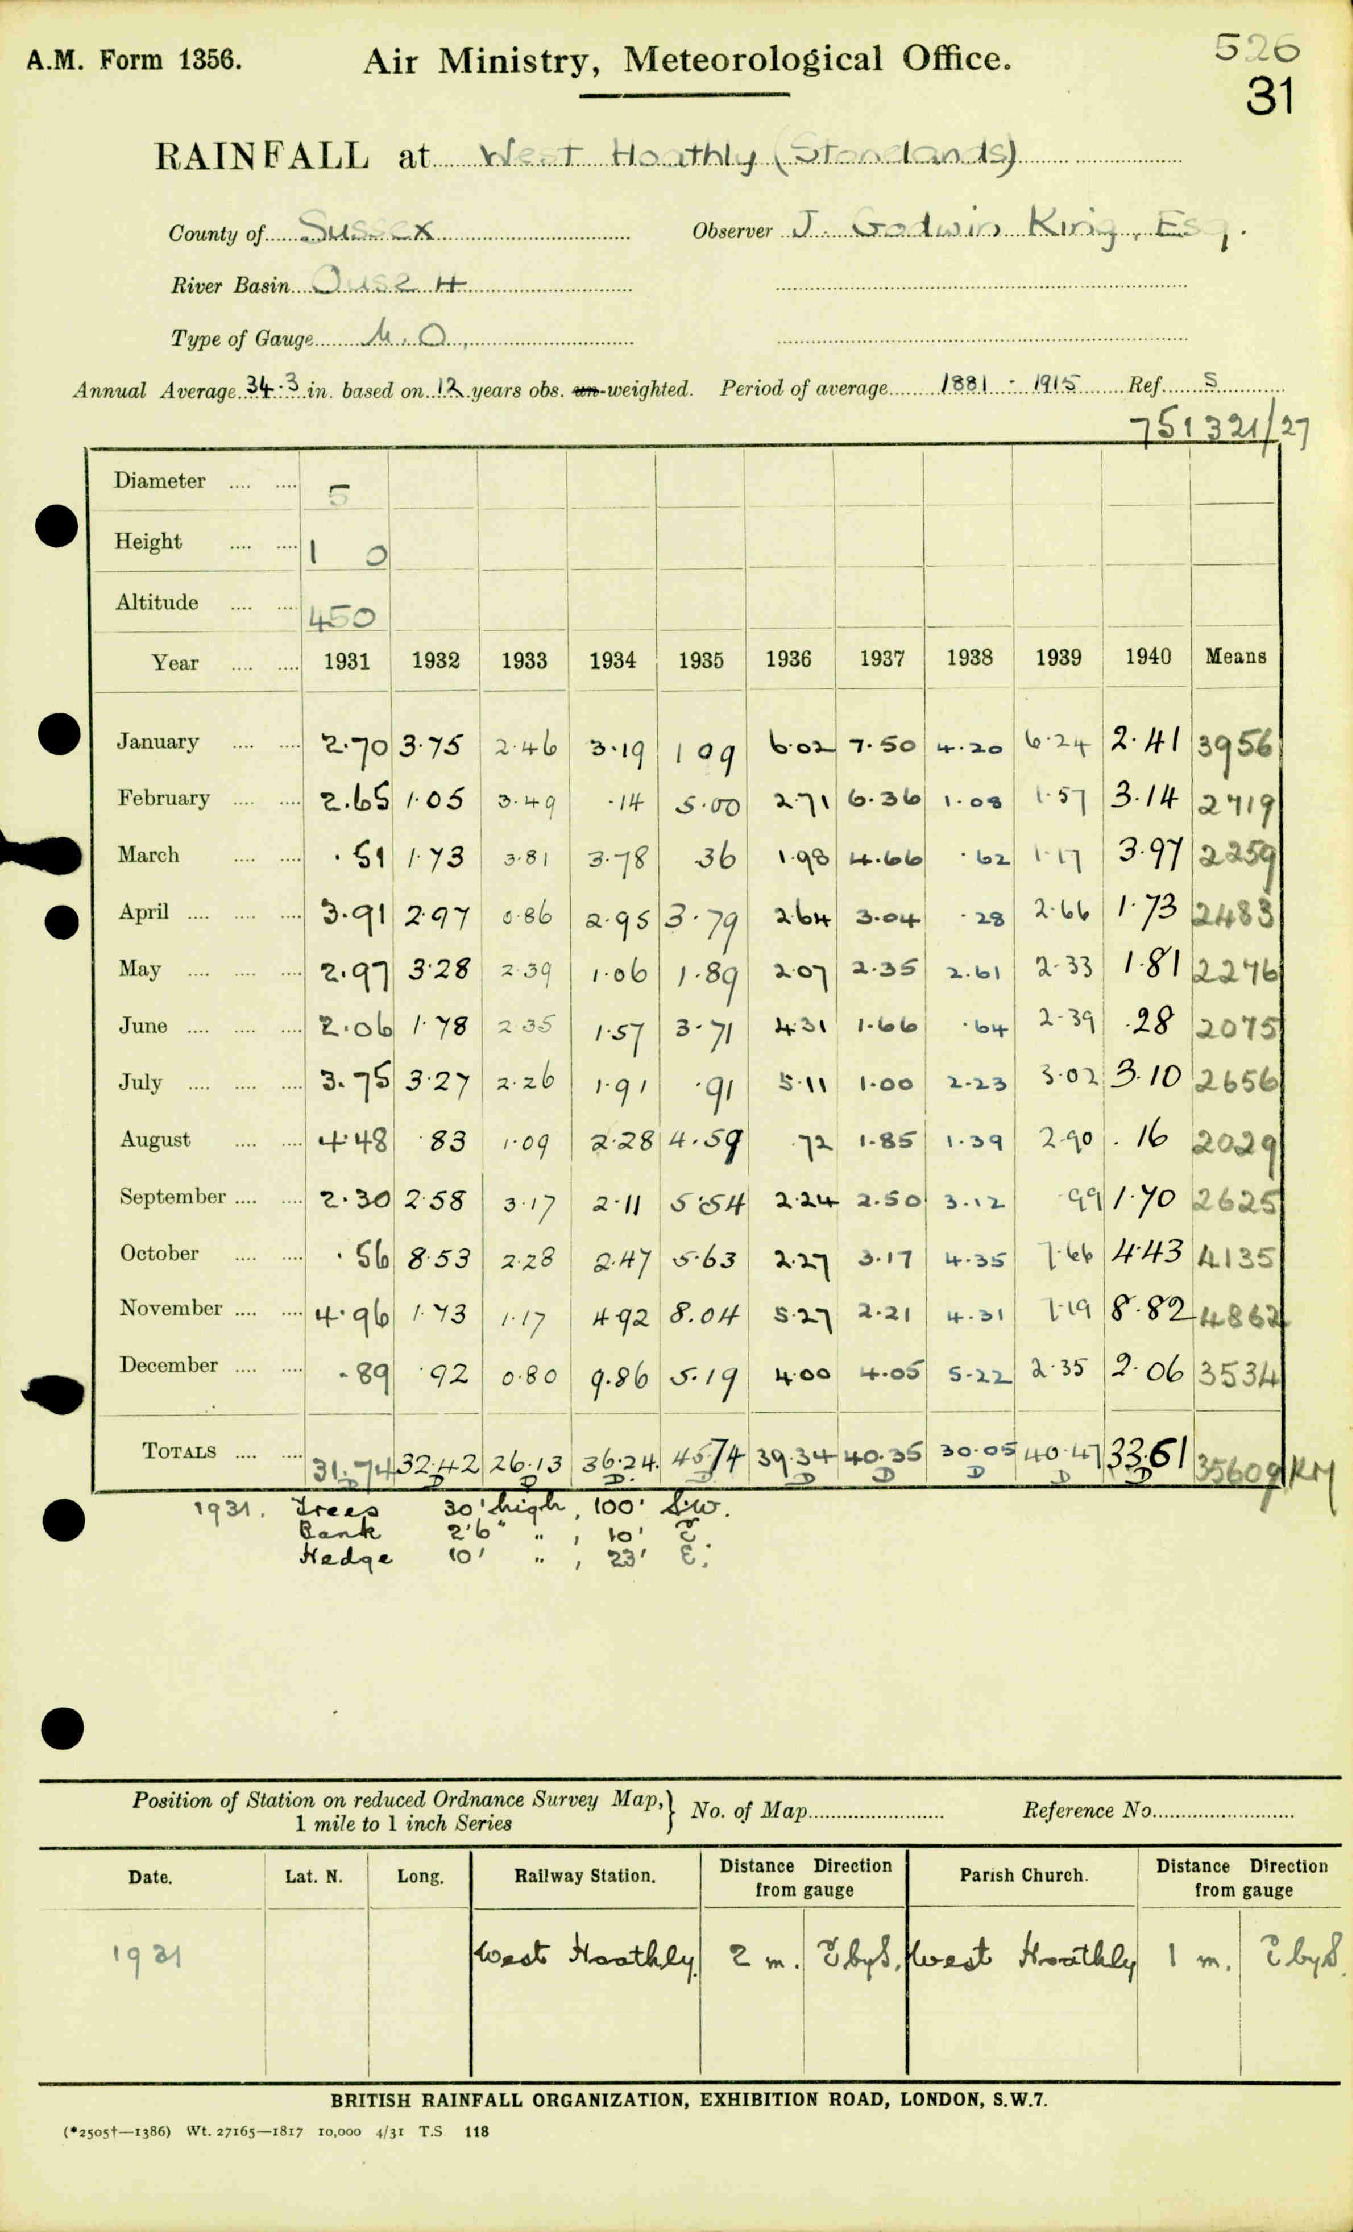 A.M. Form 1356. Air Ministry, Meteorological Office. 526
31
RAINFALL at West Hoathly (Stonelands)
County of Sussex Observer J. Godwin King, Esq.
River Basin Ouse H
Type of Gauge M.O.
Annual Average 34.3 in. based on 12 years obs. un-weighted. Period of average 1881 - 1915 Ref. S
751321/27
Diameter 5
Height 1 0
Altitude 450
Year 1931 1932 1933 1934 1935 1936 1937 1938 1939 1940 Means
January 2.70 3.75 2.46 3.19 1 09 6.02 7.50 4.20 6.24 2.41 3956
February 2.65 1.05 3.49 .14 5.00 2.71 6.36 1.08 1.57 3.14 2719
March .51 1.73 3.81 3.78 .36 1.98 4.66 .62 1.17 3.97 2259
April 3.91 2.97 0.86 2.95 3.79 2.64 3.04 .28 2.66 1.73 2483
May 2.97 3.28 2.39 1.06 1.89 2.07 2.35 2.61 2.33 1.81 2276
June 2.06 1.78 2.35 1.57 3.71 4.31 1.66 .64 2.39 .28 2075
July 3.75 3.27 2.26 1.91 .91 5.11 1.00 2.23 3.02 3.10 2656
August 4.48 .83 1.09 2.28 4.59 .72 1.85 1.39 2.90 .16 2029
September 2.30 2.58 3.17 2.11 5.54 2.24 2.50 3.12 .99 1.70 2625
October .56 8.53 2.28 2.47 5.63 2.27 3.17 4.35 7.66 4.43 4135
November 4.96 1.73 1.17 4.92 8.04 5.27 2.21 4.31 7.19 8.82 4862
December .89 .92 0.80 9.86 5.19 4.00 4.05 5.22 2.35 2.06 3534
TOTALS 31.74 32.42 26.13 36.24 45.74 39.34 40.35 30.05 40.47 33.61 35609 KM
D D D D D D D D D D
1931. Trees 30' high, 100' S.W.
Bank 2'6" ", 10' E.
Hedge 10' ", 23' E.
Position of Station on reduced Ordnance Survey Map, 1 mile to 1 inch Series } No. of Map Reference No.
Date. Lat. N. Long. Railway Station. Distance Direction from gauge Parish Church. Distance Direction from gauge
1931 West Hoathly 2 m. E by S. West Hoathly 1 m. E by S.
BRITISH RAINFALL ORGANIZATION, EXHIBITION ROAD, LONDON, S.W.7.
(*2505†—1386) Wt. 27165—1817 10,000 4/31 T.S 118